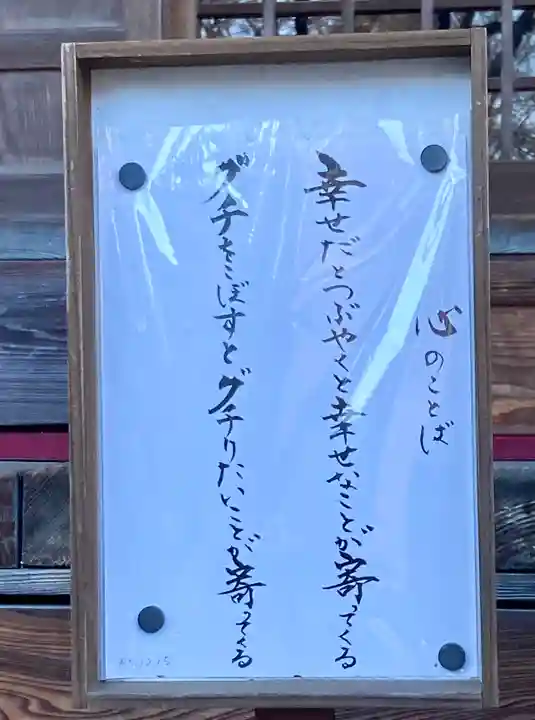 心のことば
幸せだとつぶやくと幸せなことが寄ってくる
グチをこぼすとグチりたいことが寄ってくる